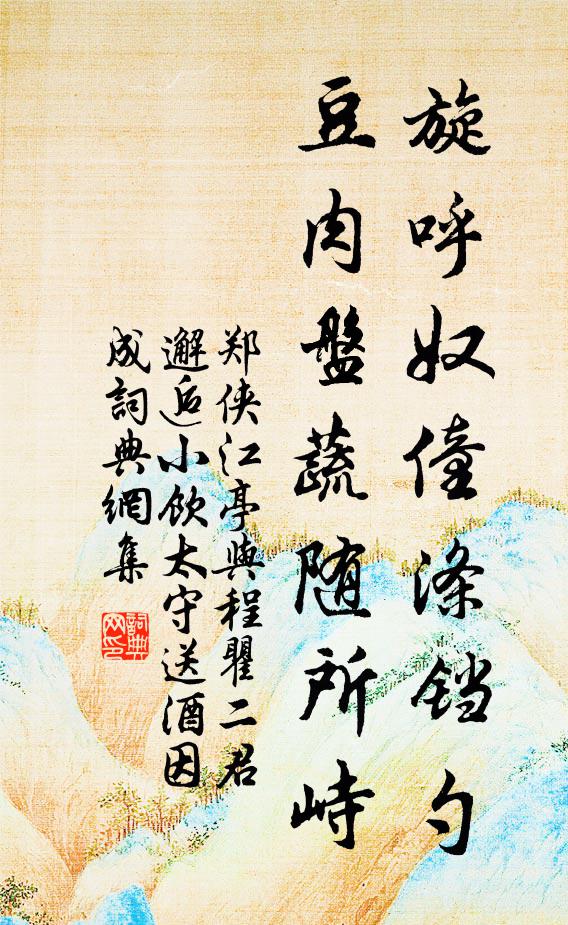 旋呼奴僮涤铛勺
豆肉盤蔬随所峙
郑侠江亭與程瞿二君
邂逅小飲太守送酒因
成詞典網集
詞典
网印